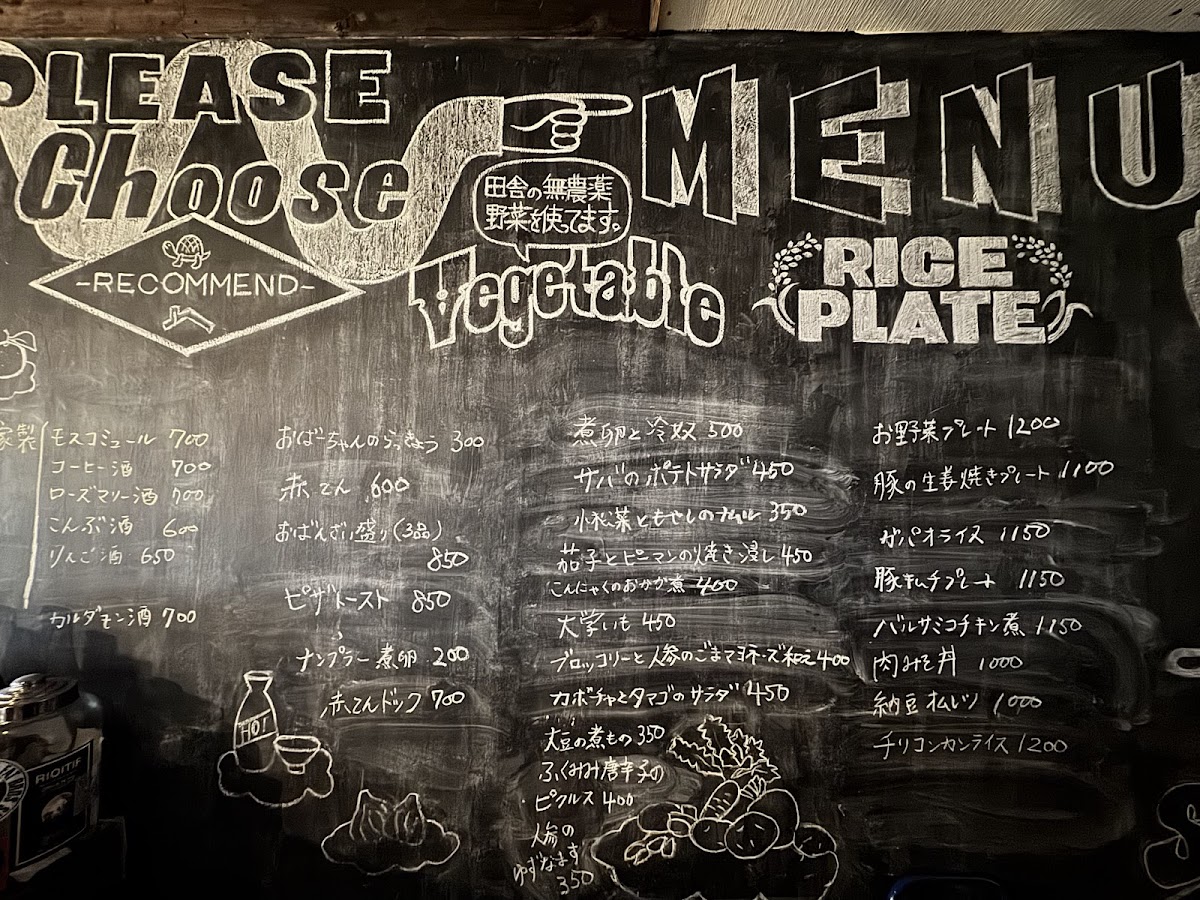 PLEASE
Choose
MENU
田舎の無農薬
野菜を使ってます。
-RECOMMEND-
Vegetable
RICE
PLATE
家製
モスコミュール 700
コーヒー酒 700
ローズマリー酒 700
こんぶ酒 600
りんご酒 650
カルダモン酒 700
おばーちゃんのらっきょう 300
赤てん 600
おばんざい盛り(3品)
850
ピザトースト 850
ナンプラー煮卵 200
赤てんドック 700
HOT
煮卵と冷奴 500
サバのポテトサラダ 450
小松菜ともやしのナムル 350
茄子とピーマンの焼き浸し 450
こんにゃくのおかか煮 400
大学いも 450
ブロッコリーと人参のごまマヨネーズ和え 400
カボチャとタマゴのサラダ 450
大豆の煮もの 350
ふくみみ唐辛子の
・ピクルス 400
人参の
ゆずなます
350
お野菜プレート 1200
豚の生姜焼きプレート 1100
ガパオライス 1150
豚キムチプレート 1150
バルサミコチキン煮 1150
肉みそ丼 1000
納豆オムレツ 1000
チリコンカンライス 1200